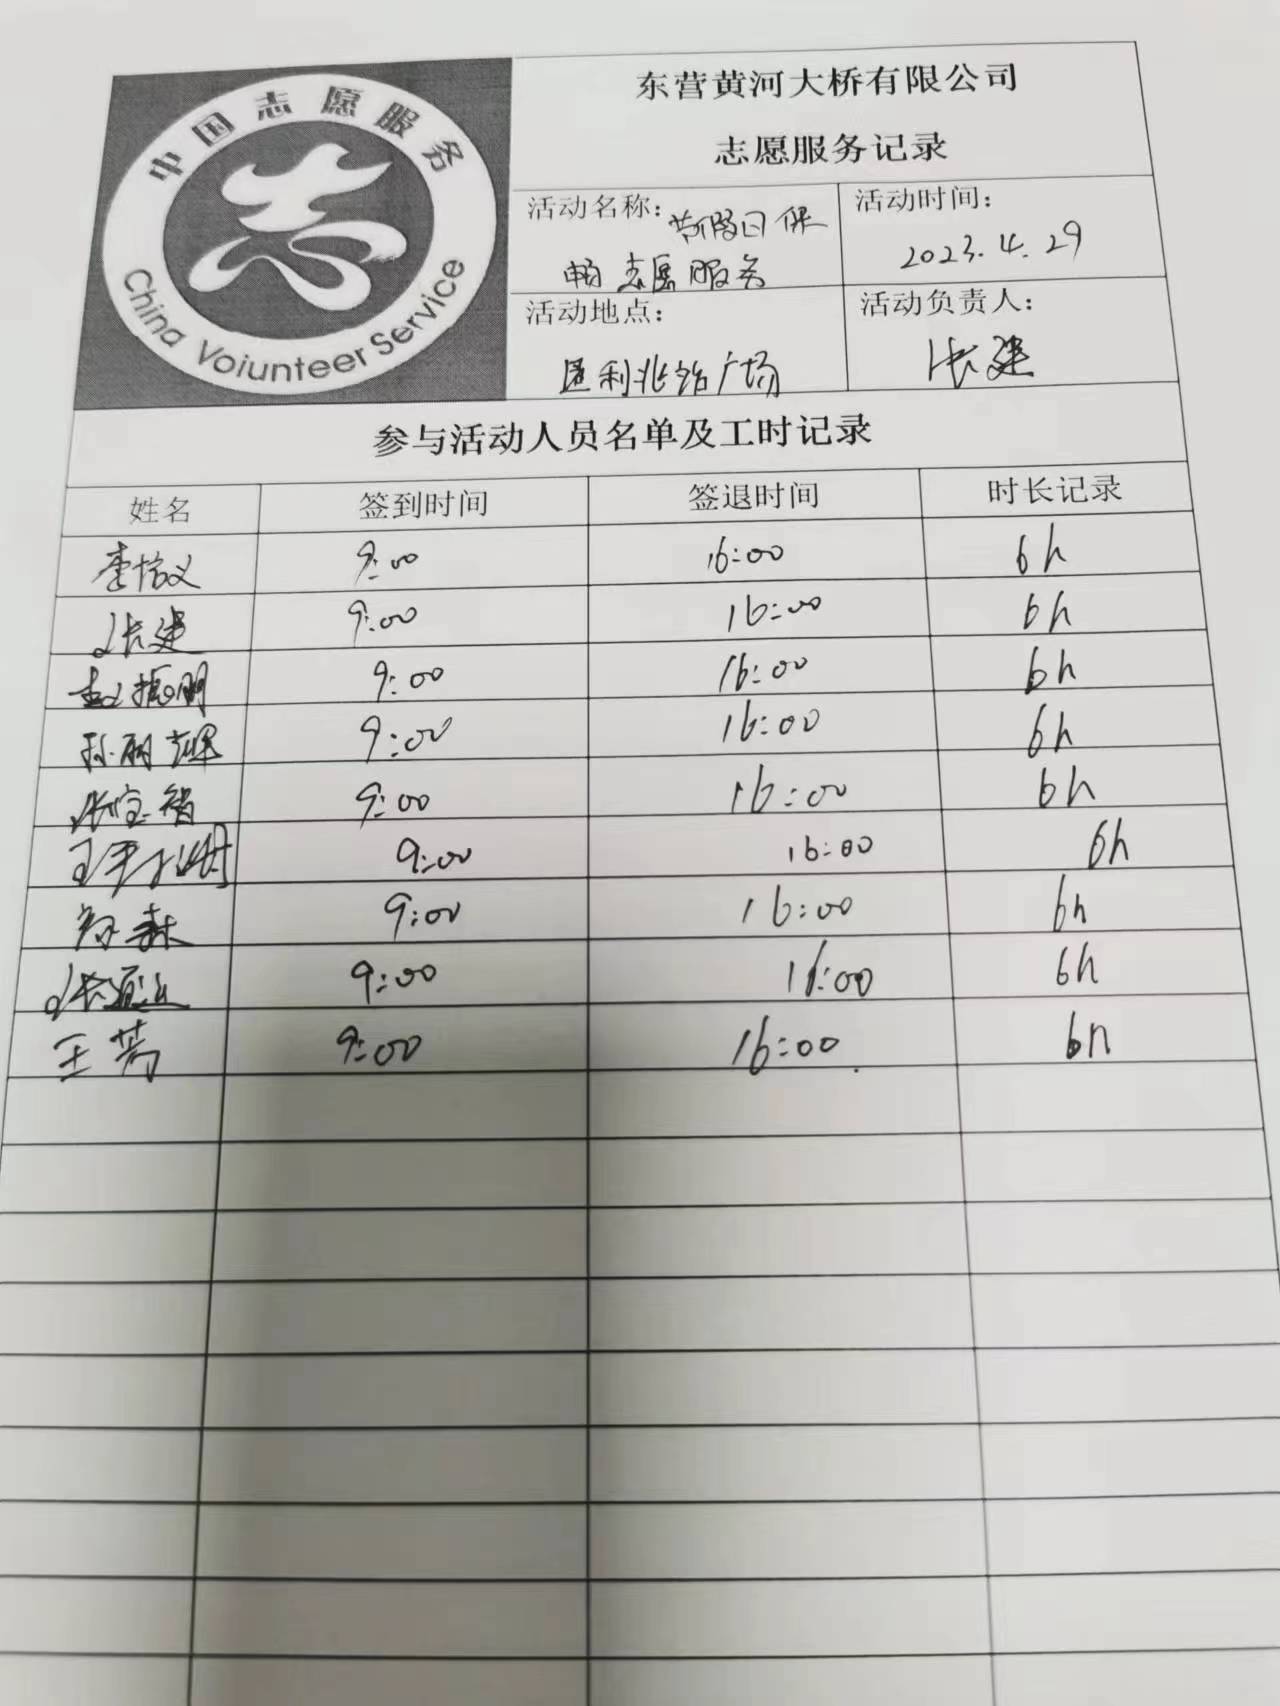 中国志愿服务
China Voiunteer Service
东营黄河大桥有限公司
志愿服务记录
活动名称：节假日保
畅志愿服务
活动时间：
2023.4.29
活动地点：
利收站广场
活动负责人：
张建
参与活动人员名单及工时记录
姓名 签到时间 签退时间 时长记录
李 义 9:00 16:00 6h
张建 9:00 16:00 6h
赵振明 9:00 16:00 6h
孙丽辉 9:00 16:00 6h
张宝智 9:00 16:00 6h
王 9:00 16:00 6h
森 9:00 16:00 6h
张 9:00 16:00 6h
王 9:00 16:00 6h